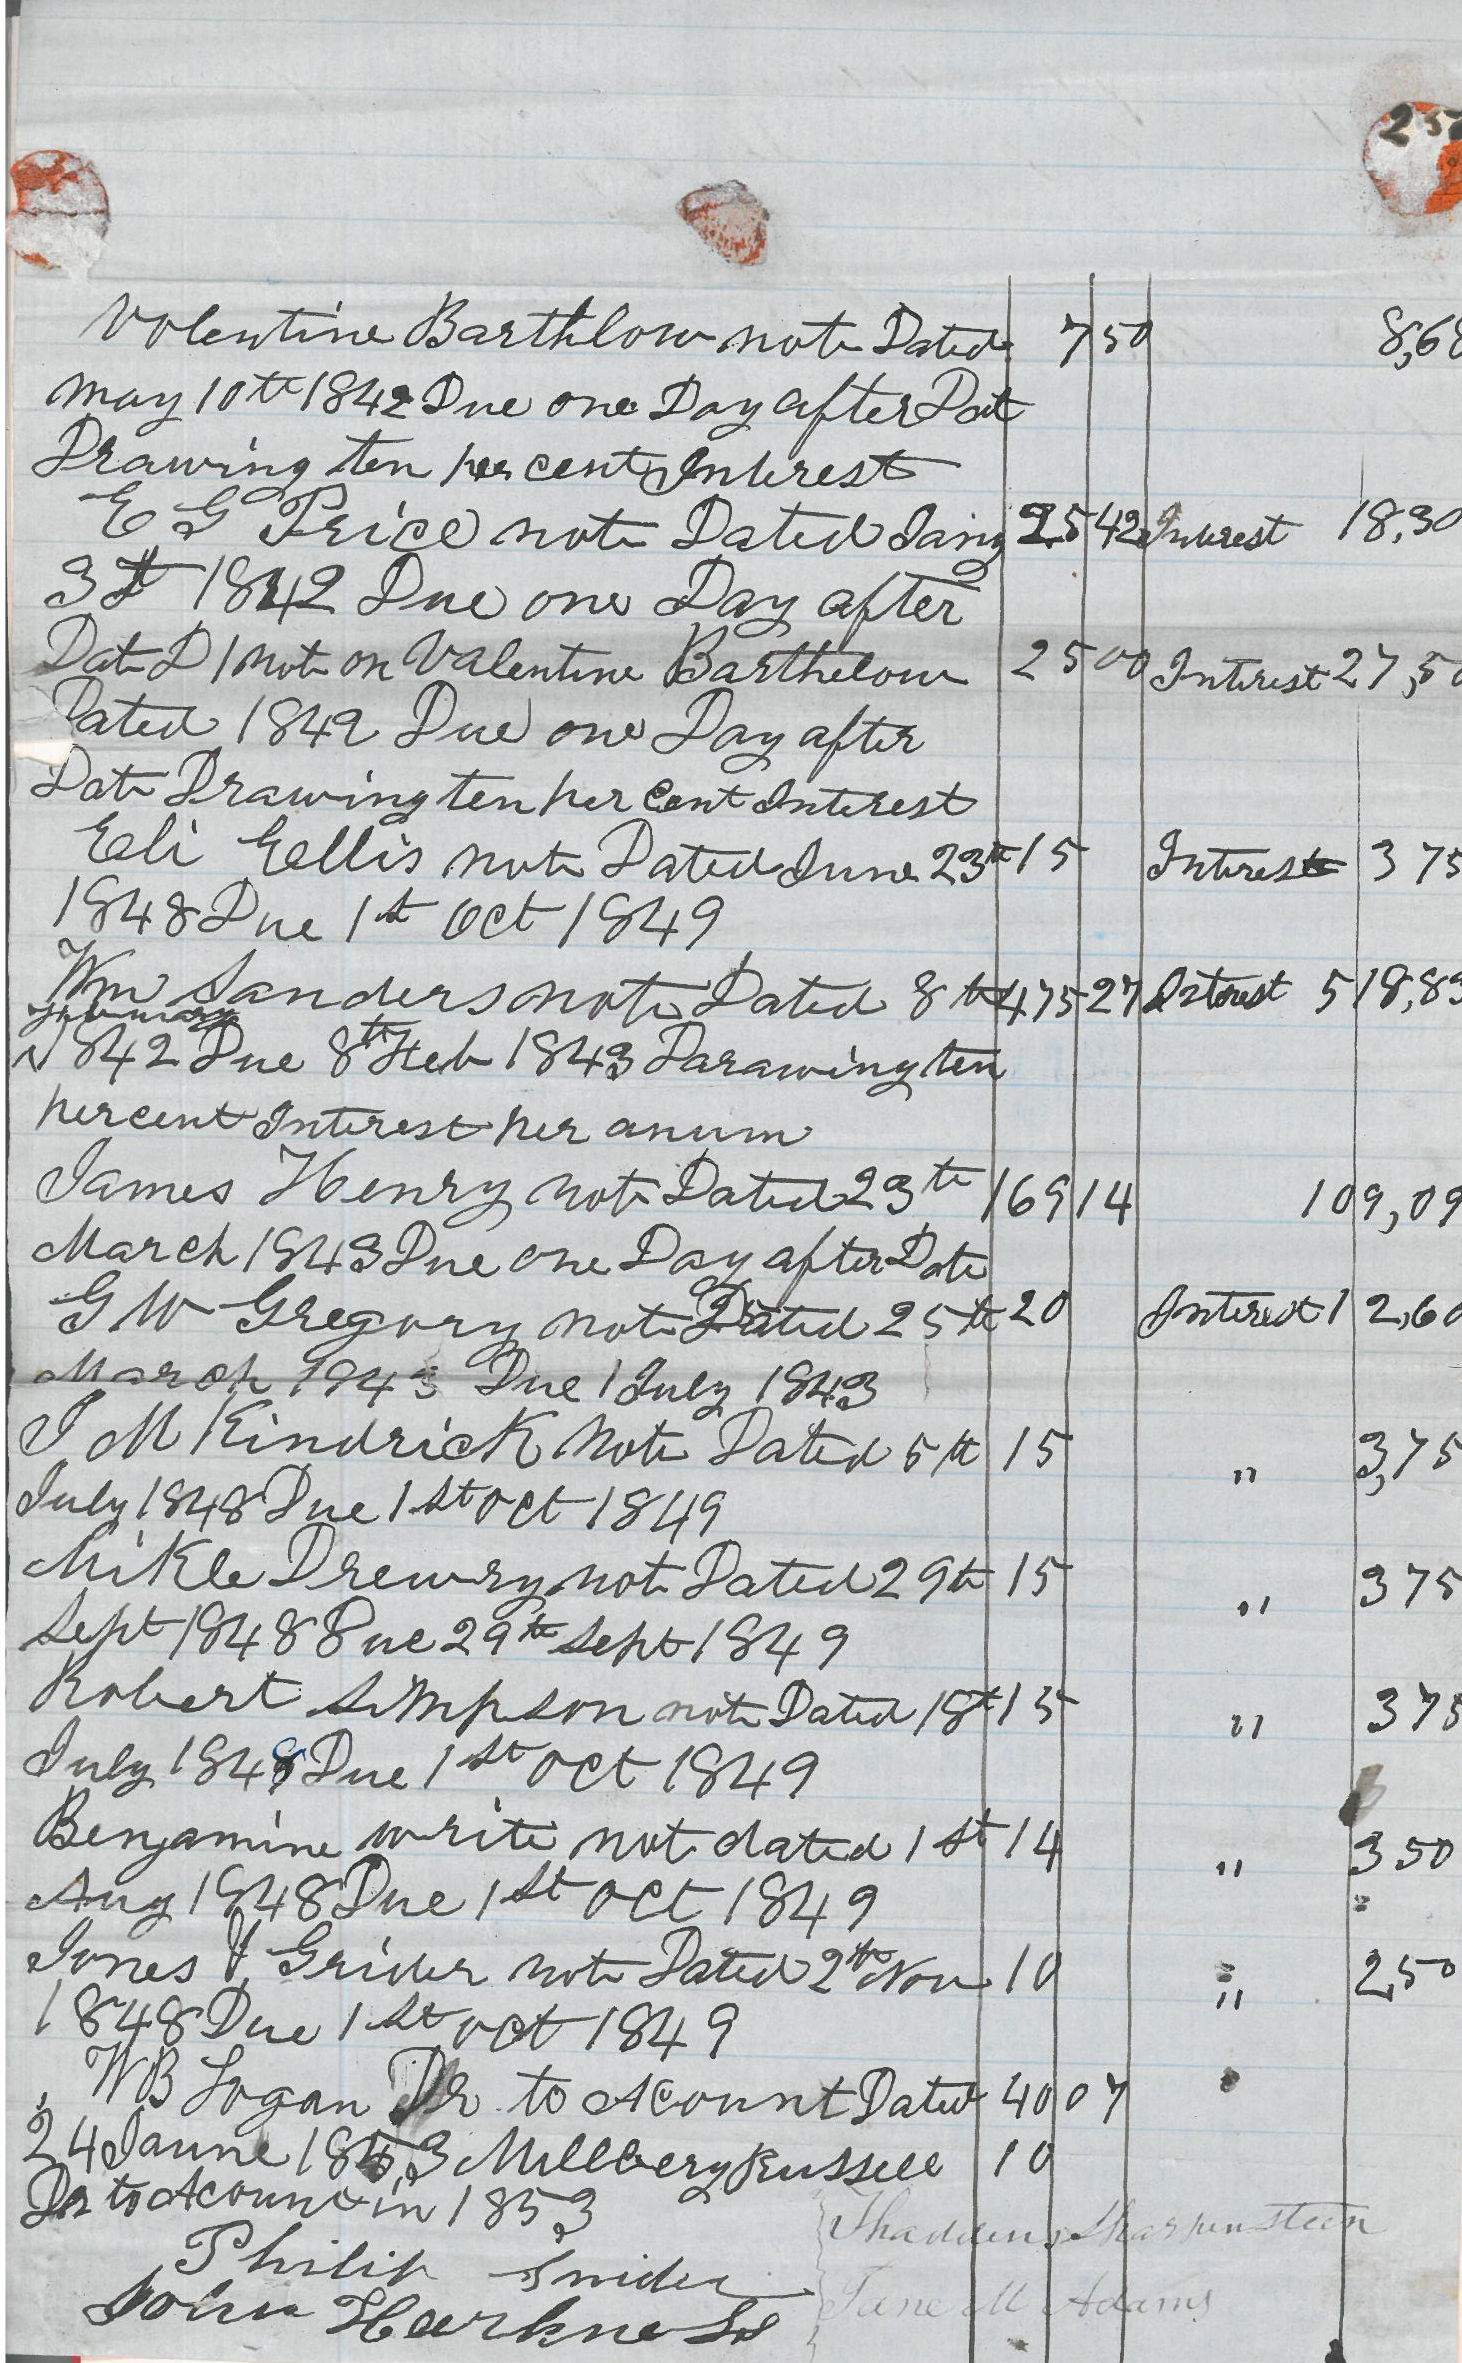 25
Volentine Barthlow note Dated 7 50 8,68
may 10th 1842 Due one Day after Dat
Drawing ten per cent Interest
E G Price note Dated Jany 25 42 Interest 18,30
3d 1842 Due one Day after
Date D 1 note on Valentine Barthelow 25 00 Interest 27,50
Dated 1842 Due one Day after
Date Drawing ten per cent Interest
Eli Eellis note Dated June 23th 15 Interest 3 75
1848 Due 1st Oct 1849
Wm Sanders note Dated 8th 475 27 Interest 518,83
1842 Due 8th Feb 1843 Darawing ten
percent Interest per anum
James Henry note Dated 23th 169 14 109,09
March 1843 Due one Day after Date
G W Gregory note Dated 25th 20 Interest 12,60
March 1843 Due 1 July 1843
J M Kindrick Note Dated 5th 15 " 3,75
July 1848 Due 1st Oct 1849
Mikle Drewry note Dated 29th 15 " 3 75
Sept 1848 Due 29th Sept 1849
Robert Simpson note Dated 18th 15 " 3 75
July 1848 Due 1st Oct 1849
Benjamine write note dated 1st 14 " 3 50
Aug 1848 Due 1st Oct 1849
Jones V Grider note Dated 2th Nov 10 " 2,50
1848 Due 1st oct 1849
W B Logan Dr to Acount Dated 40 07
24 Jaune 1853 Millbery Russell 10
Dr to Acount in 1853
Philip Snider Thaddeus Sharpenstein
John Harkness Jane M Adams